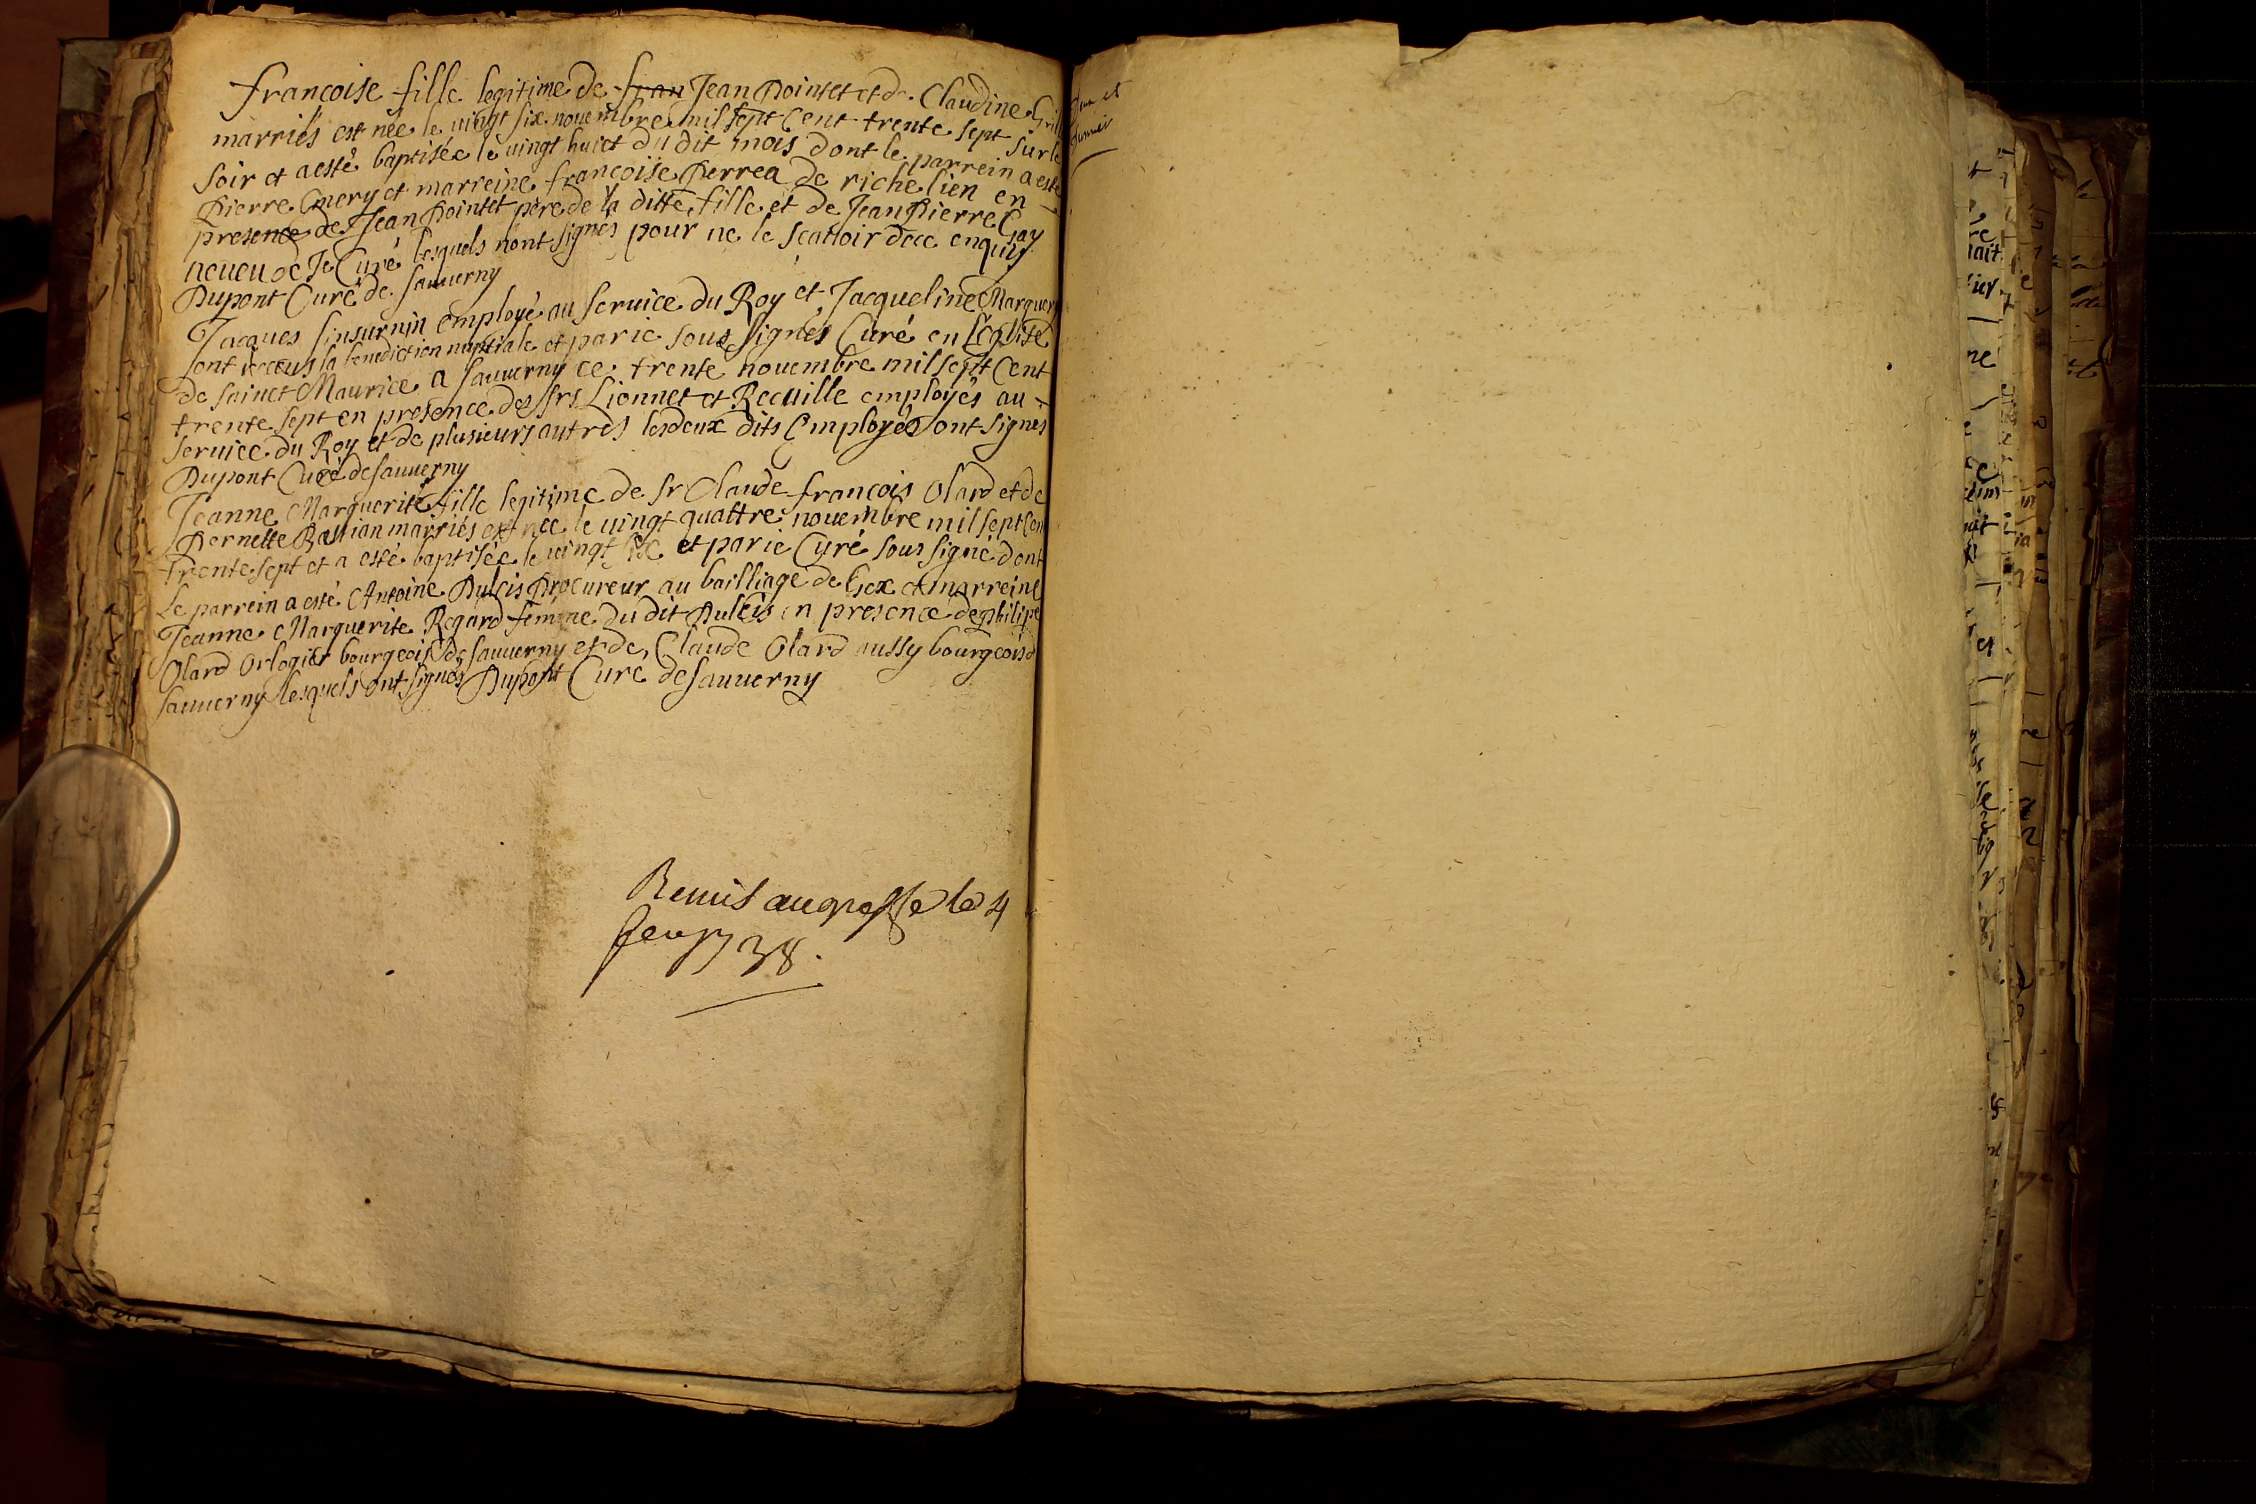 francoise fille legitime de fran Jean Pointet et de Claudine Grill
marriés est née le vingt six novembre mil sept Cent trente sept sur le
soir et a esté baptisée le vingt huict du dit mois dont le parrein a esté
Pierre Emery et marreine francoise Perrea de richelien en
presence de Jean Pointet père de la ditte fille et de Jean Pierre Gay
neveu de Je Curé lesquels nont signés pour ne le scavoir dece enquis
Dupont Curé de sauverny
Jacques sinsurnin employé au service du Roy et Jacqueline Marguer
sont receus la benediction nuptiale et par ie sous signés Curé en Leglise
de sainct Maurice a sauverny ce trente novembre mil sept Cent
trente sept en presence des srs Lionnet et Recuille employés au
service du Roy et de plusieurs autres lesdeux dits Employés ont signés
Dupont Curé de sauverny
Jeanne Marguerite fille legitime de sr Claude francois Olard et de
Pernette Bastian marriés est née le vingt quattre novembre mil sept Cen
trente sept et a esté baptisée le vingt six et par ie Curé sous signé dont
Le parrein a esté Antoine Dulcis Procureur au bailliage de Gex et marreine
Jeanne Marguerite Regard femme du dit Dulcis en presence de philipe
Olard orlogier bourgeois de sauverny et de Claude Olard aussy bourgeois d
sauverny lesquels ont signés Dupont Curé de sauverny
Remis au greffe le 4
fev 1738.